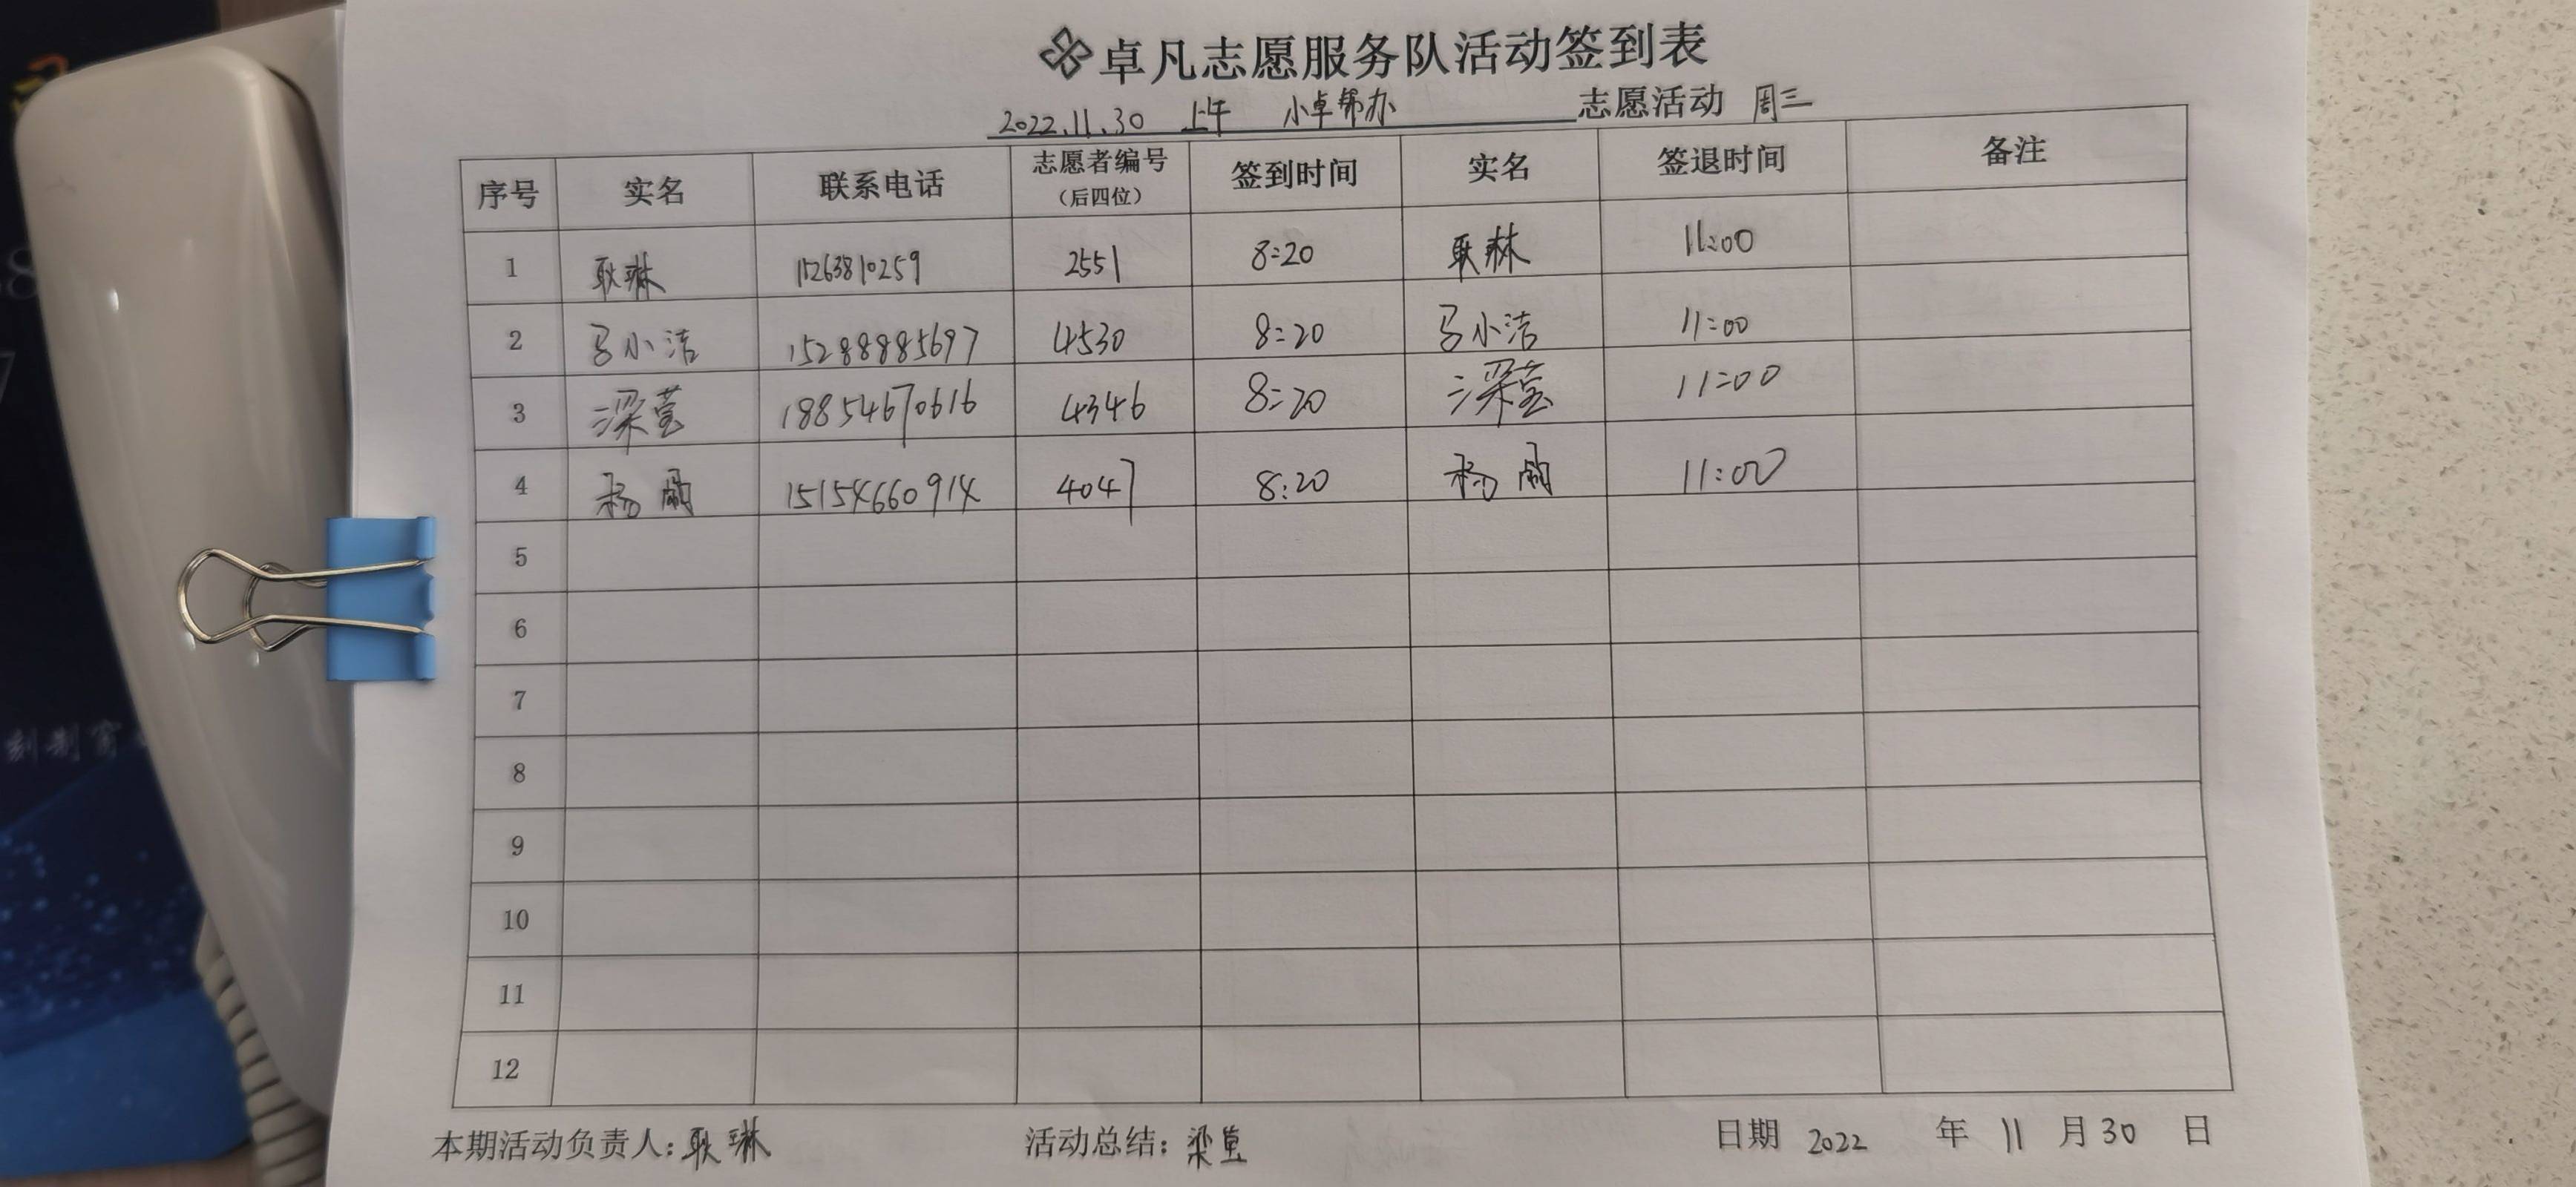 卓凡志愿服务队活动签到表
2022.11.30 上午 小卓帮办 志愿活动 周三
序号 实名 联系电话 志愿者编号（后四位） 签到时间 实名 签退时间 备注
1 耿琳 15263810259 2551 8:20 耿琳 11:00
2 马小洁 15288885697 4530 8:20 马小洁 11:00
3 梁莹 18854670616 4346 8:20 梁莹 11:00
4 杨 15154660914 4047 8:20 杨 11:00
5
6
7
8
9
10
11
12
本期活动负责人：耿琳 活动总结：梁莹 日期 2022 年 11 月 30 日
刻制窗